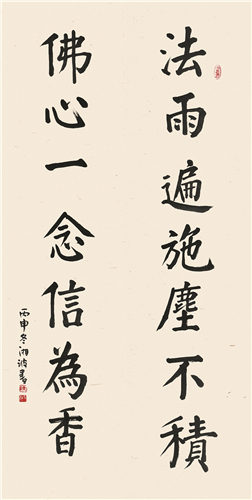 法雨遍施塵不積
佛心一念信為香
丙申冬湘波書